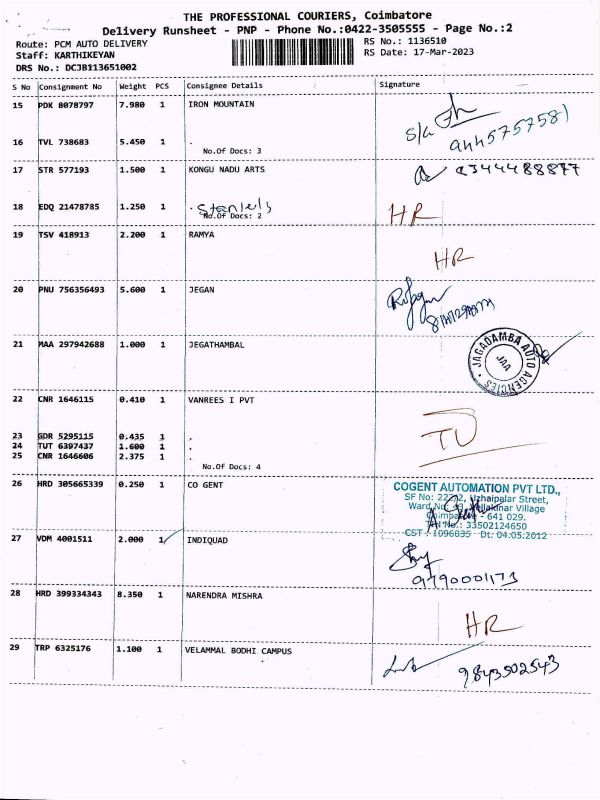 THE PROFESSIONAL COURIERS, Coimbatore
Delivery Runsheet - PNP - Phone No.:0422-3505555 - Page No.:2
Route: PCM AUTO DELIVERY RS No.: 1136510
Staff: KARTHIKEYAN RS Date: 17-Mar-2023
DRS No.: DCJB113651002
S No Consignment No Weight PCS Consignee Details Signature
15 PDK 8078797 7.980 1 IRON MOUNTAIN
S/G
16 TVL 738683 5.450 1 .
No.Of Docs: 3
17 STR 577193 1.500 1 KONGU NADU ARTS
18 EDQ 21478785 1.250 1 . Staniels HR
No.Of Docs: 2
19 TSV 418913 2.200 1 RAMYA
HR
20 PNU 756356493 5.600 1 JEGAN
21 MAA 297942688 1.000 1 JEGATHAMBAL
JAGADAMBA AUTO AGENCIES
JAA
22 CNR 1646115 0.410 1 VANREES I PVT
TU
23 GDR 5295115 0.435 1 .
24 TUT 6397437 1.600 1 .
25 CNR 1646606 2.375 1 .
No.Of Docs: 4
26 HRD 305665339 0.250 1 CO GENT
COGENT AUTOMATION PVT LTD.,
SF No: Uzhaipalar Street,
Ward Vellakinar Village
Coimbatore - 641 029.
TIN No.: 33502124650
CST : 1096035 Dt: 04.05.2012
27 VDM 4001511 2.000 1 INDIQUAD
9790001173
28 HRD 399334343 8.350 1 NARENDRA MISHRA
HR
29 TRP 6325176 1.100 1 VELAMMAL BODHI CAMPUS
9843502543